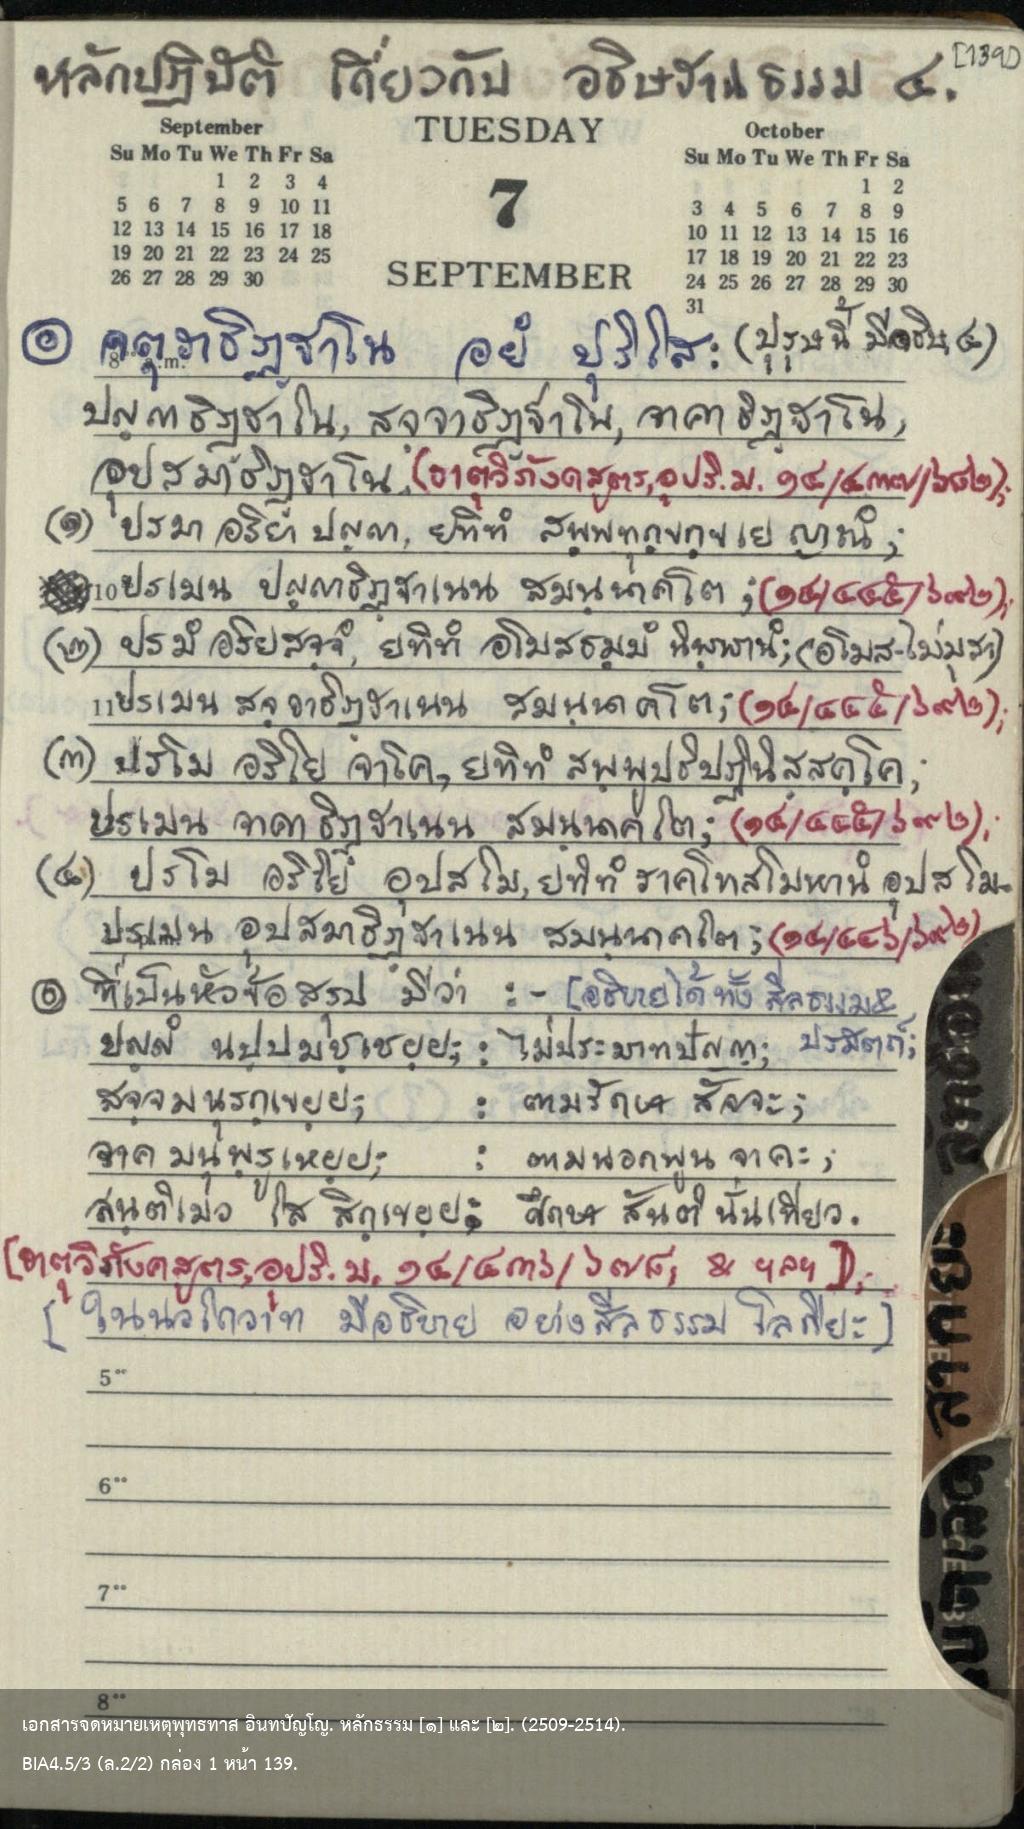 [139]
หลักปฏิบัติ เกี่ยวกับ อธิษฐานธรรม ๔.
September
Su Mo Tu We Th Fr Sa
1 2 3 4
5 6 7 8 9 10 11
12 13 14 15 16 17 18
19 20 21 22 23 24 25
26 27 28 29 30
TUESDAY
7
SEPTEMBER
October
Su Mo Tu We Th Fr Sa
1 2
3 4 5 6 7 8 9
10 11 12 13 14 15 16
17 18 19 20 21 22 23
24 25 26 27 28 29 30
31
๑ จตุราธิฏฺฐาโน อยํ ปุริโส: (ปุรุษนี้ มีอธิษ ๔)
8 a.m.
ปญฺญาธิฏฺฐาโน, สจฺจาธิฏฺฐาโน, จาคาธิฏฺฐาโน,
อุปสมาธิฏฺฐาโน. (ธาตุวิภังคสูตร, อุปริ.ม. ๑๔/๔๓๗/๖๘๒);
(๑) ปรมา อริยา ปญฺญา, ยทิทํ สพฺพทุกฺขกฺขเย ญาณํ;
10 ปรเมน ปญฺญาธิฏฺฐาเนน สมนฺนาคโต; (๑๔/๔๔๕/๖๙๒);
(๒) ปรมํ อริยสจฺจํ, ยทิทํ อโมสธมฺมํ นิพฺพานํ; (อโมส-ไม่มุสา)
11 ปรเมน สจฺจาธิฏฺฐาเนน สมนฺนาคโต; (๑๔/๔๔๕/๖๙๒);
(๓) ปรโม อริโย จาโค, ยทิทํ สพฺพูปธิปฏินิสฺสคฺโค;
ปรเมน จาคาธิฏฺฐาเนน สมนฺนาคโต; (๑๔/๔๔๕/๖๙๒);
(๔) ปรโม อริโย อุปสโม, ยทิทํ ราคโทสโมหานํ อุปสโม.
ปรเมน อุปสมาธิฏฺฐาเนน สมนฺนาคโต; (๑๔/๔๔๖/๖๙๒)
๒ ที่เป็นหัวข้อสรุป มีว่า :- [อธิบายได้ทั้ง สีลธรรม&
ปญฺญํ นปฺปมชฺเชยฺย; : ไม่ประมาทปัญญา; ปรมัตถ์;
สจฺจมนุรกฺเขยฺย; : ตามรักษา สัจจะ;
จาคมนุพฺรูเหยฺย; : ตามพอกพูน จาคะ;
สนฺติเมว โส สิกฺเขยฺย; ศึกษา สันติ นั่นเทียว.
[ธาตุวิภังคสูตร, อุปริ.ม. ๑๔/๔๓๖/๖๗๘; & ฯลฯ ];
[ในนวโกวาท มีอธิบาย อย่างสีลธรรม โลกียะ]
5°°
6°°
7°°
8°°
เอกสารจดหมายเหตุพุทธทาส อินทปัญโญ. หลักธรรม [๑] และ [๒]. (2509-2514).
BIA4.5/3 (ล.2/2) กล่อง 1 หน้า 139.